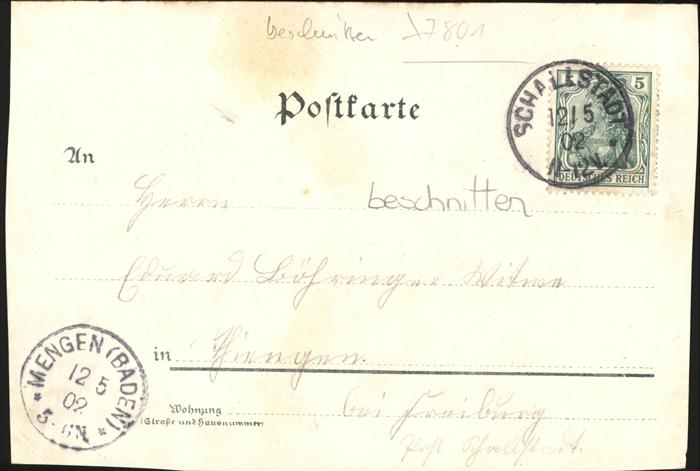 beschnitten 17801
Postkarte
5
DEUTSCHES REICH
SCHALLSTADT
12/5
02
11-12V.
An
Herrn
beschnitten
Eduard Böhringer Witwe
in Thiengen.
Wohnung
(Straße und Hausnummer)
bei Freiburg
Post Schallstadt.
* MENGEN (BADEN) *
12 5
02
5-6N